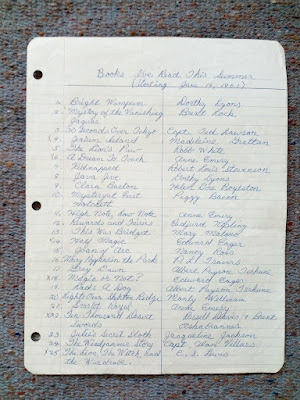 Books I've Read This Summer
1. Bright Wampum Dorothy Lyons
2. Mystery of the Vanishing
Jaguar
3. 30 Seconds Over Tokyo Capt. Ted Lawson
4. Jason Island Madeleine Grattan
5. The Lion's Paw Robb White
6. A Dream To Touch Anne Emery
7. Kidnapped Robert Louis Stevenson
8. Java Jive Dorothy Lyons
9. Clara Barton Helen Dore Boylston
10. Mystery at East
Hatchett Peggy Bacon
11. High Note, Low Note Anne Emery
12. Rewards and Fairies Rudyard Kipling
13. This Was Bridget Mary
14. Half Magic Edward Eager
15. Joan of Arc Nancy Ross
16. Mary Poppins in the Park P. L. Travers
17. Gray Dawn Albert Payson Terhune
18. Magic or Not? Edward Eager
19. Lad: A Dog Albert Payson Terhune
20.
21. Scarlet Royal Anne Emery
22. Ten Thousand Desert
Swords Russell Davis & Brent
Ashabranner
23. Julie's Secret Sloth Jacqueline Jackson
24. The Windjammer Story Capt. Alan Villiers
25. The Lion, The Witch, And
the Wardrobe C. S. Lewis